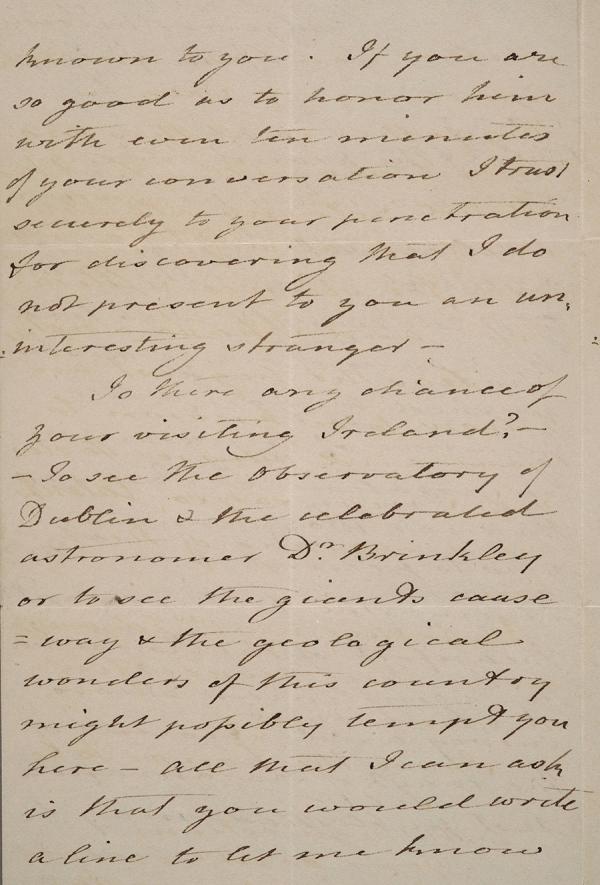 known to you. If you are
so good as to honor him
with even ten minutes
of your conversation I trust
securely to your penetration
for discovering that I do
not present to you an un=
=interesting stranger —
Is there any chance of
your visiting Ireland? —
— To see the Observatory of
Dublin & the celebrated
astronomer Dr. Brinkley
or to see the giants cause
=way & the geological
wonders of this country
might possibly tempt you
here — all that I can ask
is that you would write
a line to let me know